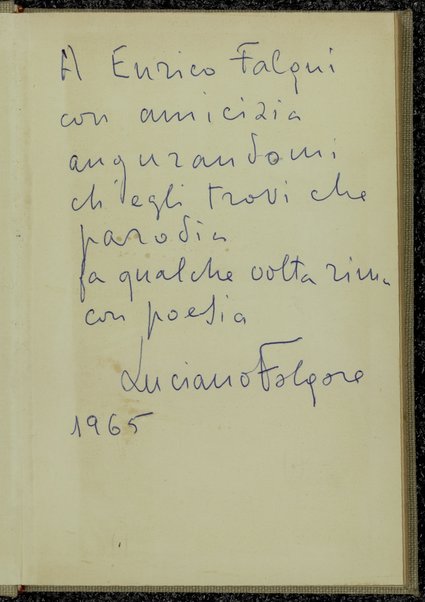 A Enrico Falqui
con amicizia
augurandomi
ch'egli trovi che
parodia
fa qualche volta rima
con poesia
Luciano Folgore
1965